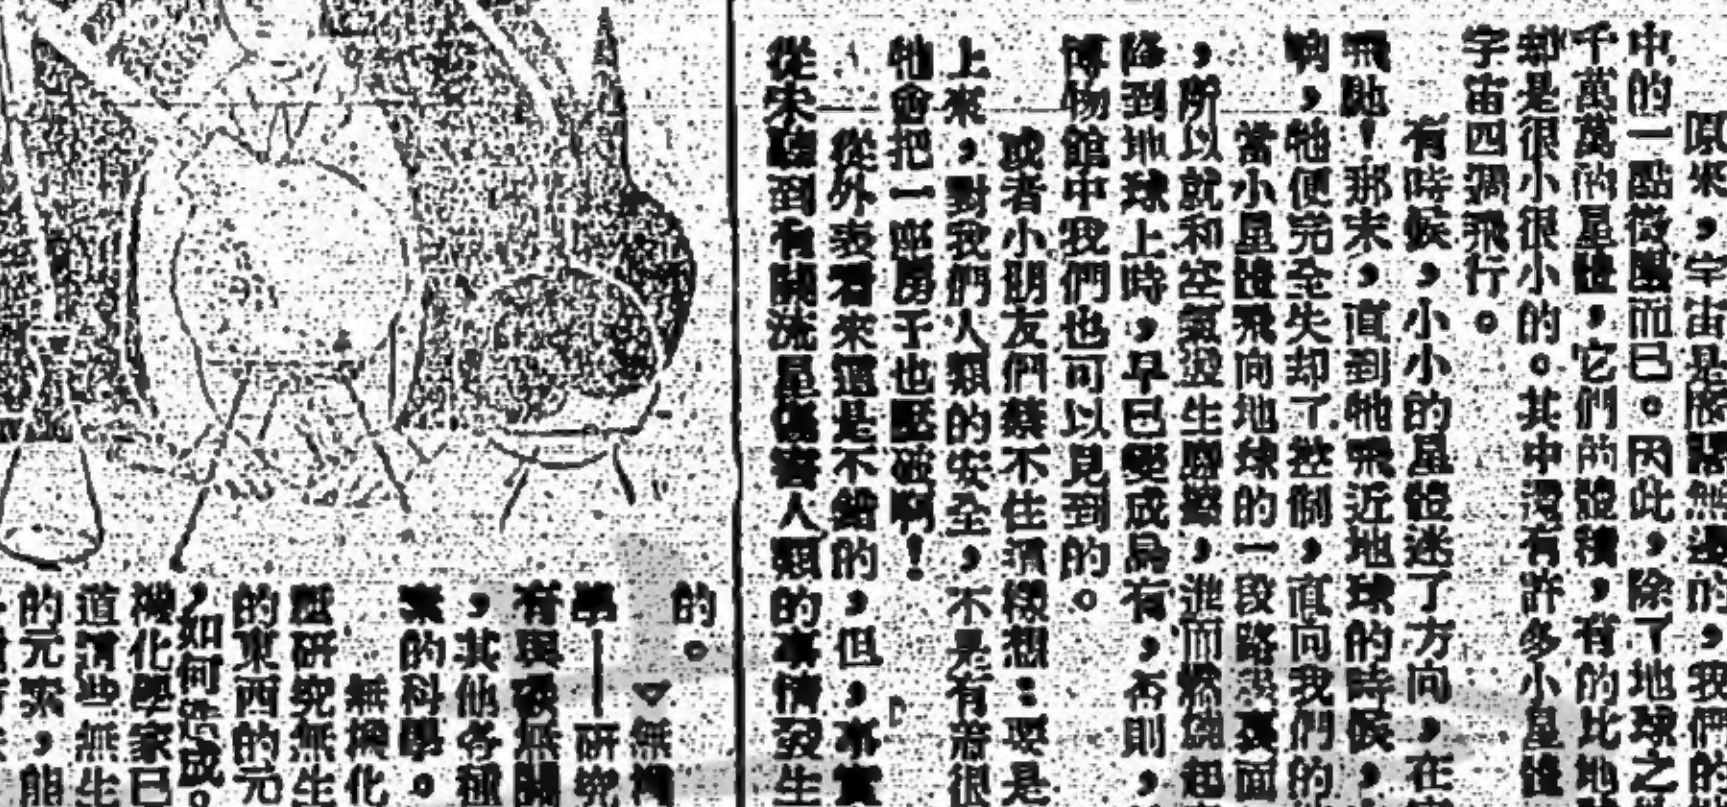 原來，宇宙是廣闊無邊的，我們的
中的一點微塵而已。因此，除了地球之
千萬萬的星體，它們的體積，有的比地
却是很小很小的。其中還有許多小星體
宇宙四週飛行。
有時候，小小的星體迷了方向，在
飛馳！那末，直到牠飛近地球的時候，
响，牠便完全失却了控制，直向我們的
當小星體飛向地球的一段路程裏面
，所以就和空氣發生磨擦，進而燃燒起
降到地球上時，早已變成烏有，否則，
博物館中我們也可以見到的。
或者小朋友們禁不住這樣想：要是
上來，對我們人類的安全，不是有着很
牠會把一座房子也壓破啊！
從外表看來這是不錯的，但，事實
從未聽到有關流星傷害人類的事情發生
的。
▽無機
學——研究
有與碳無關
，其他各種
素的科學。
無機化
究無生
的東西的元
，如何造成。
機化學家已
道這些無生
的元素，能